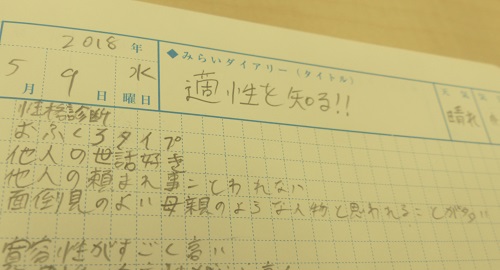 2018年
5月9日水曜日
◆みらいダイアリー(タイトル)
適性を知る!!
天気
晴れ
性格診断
おふくろタイプ
他人の世話好き
他人の頼まれ事ことわれない
面倒見のよい母親のような人物と思われることが多い
寛容性がすごく高い